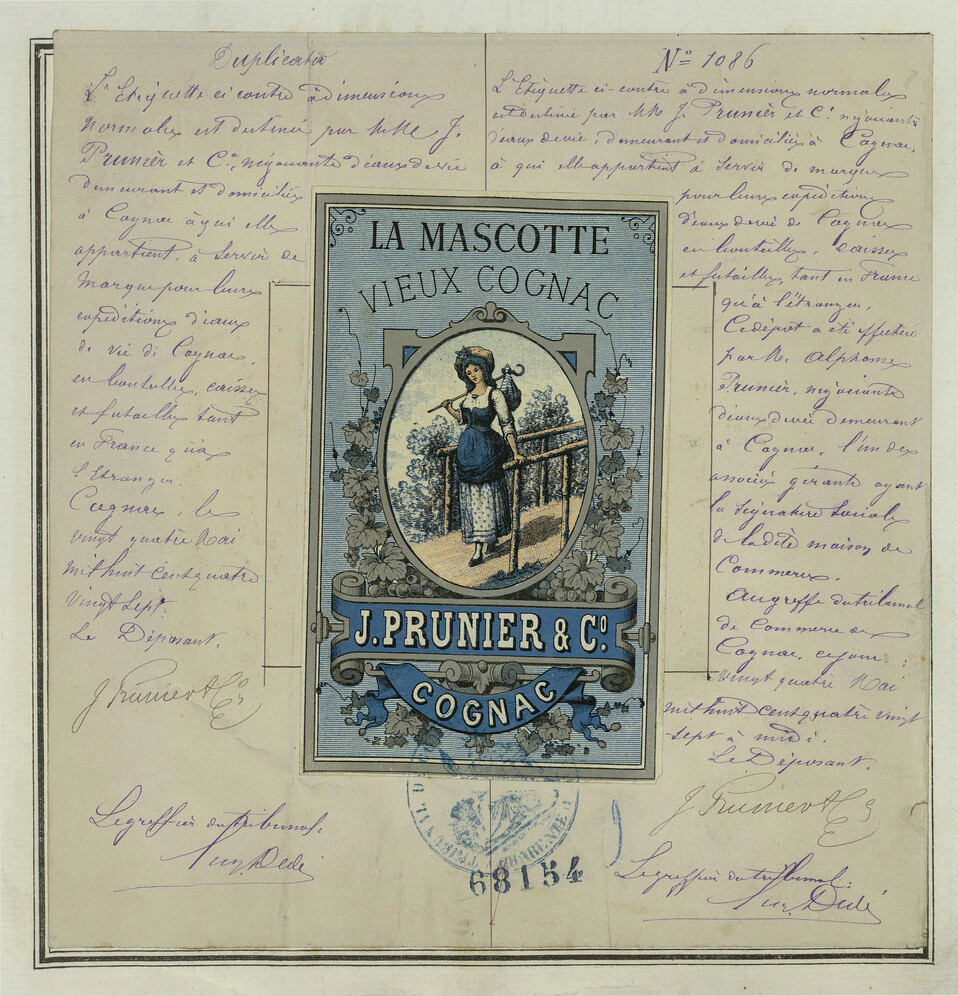 Duplicata
L'Etiquette ci contre à dimensions
normales est destinée par MM J.
Prunier et Cie, négociants d'eaux de vie
demeurant et domiciliés
à Cognac à qui elle
appartient, à Servir de
Marque pour leurs
expéditions d'eaux
de vie de Cognac,
en bouteilles, caisses
et futailles tant
en France qu'à
l'Etranger.
Cognac, le
vingt quatre Mai
mil huit cent quatre
vingt Sept.
Le Déposant.
J Prunier & Co
Le greffier du tribunal:
Dédé
No 1086
L'Etiquette ci-contre à dimensions normales
est destinée par MM J. Prunier et Cie négociants
d'eaux de vie, demeurant et domiciliés à Cognac,
à qui elle appartient à Servir de marque
pour leurs expéditions
d'eaux de vie de Cognac
en bouteilles, caisses
et futailles, tant en France
qu'à l'étranger.
Ce dépôt a été effectué
par M. Alphonse
Prunier, négociant
d'eaux de vie demeurant
à Cognac, l'un des
associés gérants ayant
la Signature Sociale
de la dite maison de
Commerce.
Au greffe du tribunal
de Commerce de
Cognac, ce jour:
vingt quatre Mai
mil huit cent quatre vingt
sept à midi.
Le Déposant.
J Prunier & Co
Le greffier du tribunal:
Dédé
LA MASCOTTE
VIEUX COGNAC
J. PRUNIER & Co.
COGNAC
68154